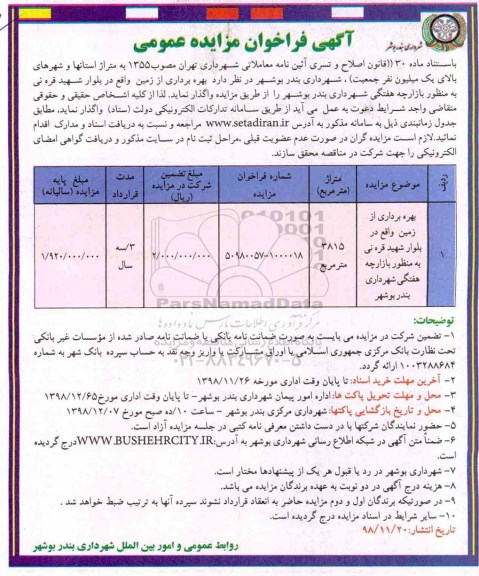 آگهی فراخوان مزایده عمومی
شهرداری بندر بوشهر
باستناد ماده ۳۰ ((قانون اصلاح و تسری آئین نامه معاملاتی شهرداری تهران مصوب۱۳۵۵ به متراژ استانها و شهرهای
بالای یک میلیون نفر جمعیت) ، شهرداری بندر بوشهر در نظر دارد بهره برداری از زمین واقع در بلوار شهید قره نی
به منظور بازارچه هفتگی شهرداری بندر بوشهر را از طریق مزایده واگذار نماید. لذا از کلیه اشخاص حقیقی و حقوقی
متقاضی واجد شرایط دعوت به عمل می آید از طریق سامانه تدارکات الکترونیکی دولت (ستاد) واگذار نماید، مطابق
جدول زمانبندی ذیل به سامانه مذکور به آدرس www.setadiran.ir مراجعه و نسبت به دریافت اسناد و مدارک اقدام
نمائید.لازم است مزایده گران در صورت عدم عضویت قبلی ،مراحل ثبت نام در سایت مذکور و دریافت گواهی امضای
الکترونیکی را جهت شرکت در مناقصه محقق سازند.
ردیف
موضوع مزایده
متراژ (مترمربع)
شماره فراخوان مزایده
مبلغ تضمین شرکت در مزایده (ریال)
مدت قرارداد
مبلغ پایه مزایده (سالیانه)
۱
بهره برداری از
زمین واقع در
بلوار شهید قره نی
به منظور بازارچه
هفتگی شهرداری
بندر بوشهر
۳۸۱۵ مترمربع
۵۰۹۸۰۰۵۷-۱۰۰۰۰۱۸
۲/۰۰۰/۰۰۰/۰۰۰
۳/سه سال
۱/۹۲۰/۰۰۰/۰۰۰
ParsNamadData
۰۲۱-۸۸۳۴۹۶۷۰-۵
توضیحات:
۱- تضمین شرکت در مزایده می بایست به صورت ضمانت نامه بانکی یا ضمانت نامه صادر شده از مؤسسات غیر بانکی
تحت نظارت بانک مرکزی جمهوری اسلامی یا اوراق مشارکت یا واریز وجه نقد به حساب سپرده بانک شهر به شماره
۱۰۰۳۲۸۸۶۸۴ ارائه گردد.
۲- آخرین مهلت خرید اسناد: تا پایان وقت اداری مورخه ۱۳۹۸/۱۱/۲۶
۳- محل و مهلت تحویل پاکت ها:اداره امور پیمان شهرداری بندر بوشهر- تا پایان وقت اداری مورخ۱۳۹۸/۱۲/۶۵
۴- محل و تاریخ بازگشایی پاکتها: شهرداری مرکزی بندر بوشهر - ساعت ۱۰/ده صبح مورخ ۱۳۹۸/۱۲/۰۷
۵- حضور نمایندگان شرکتها با در دست داشتن معرفی نامه کتبی در جلسه مزایده آزاد است.
۶- ضمناً متن آگهی در شبکه اطلاع رسانی شهرداری بوشهر به آدرس:WWW.BUSHEHRCITY.IRدرج گردیده
است.
۷- شهرداری بوشهر در رد یا قبول هر یک از پیشنهادها مختار است.
۸- هزینه درج آگهی در دو نوبت به عهده برندگان مزایده می باشد.
۹- در صورتیکه برندگان اول و دوم مزایده حاضر به انعقاد قرارداد نشوند سپرده آنها به ترتیب ضبط خواهد شد .
۱۰- سایر شرایط در اسناد مزایده درج گردیده است.
تاریخ انتشار:۹۸/۱۱/۲۰
روابط عمومی و امور بین الملل شهرداری بندر بوشهر